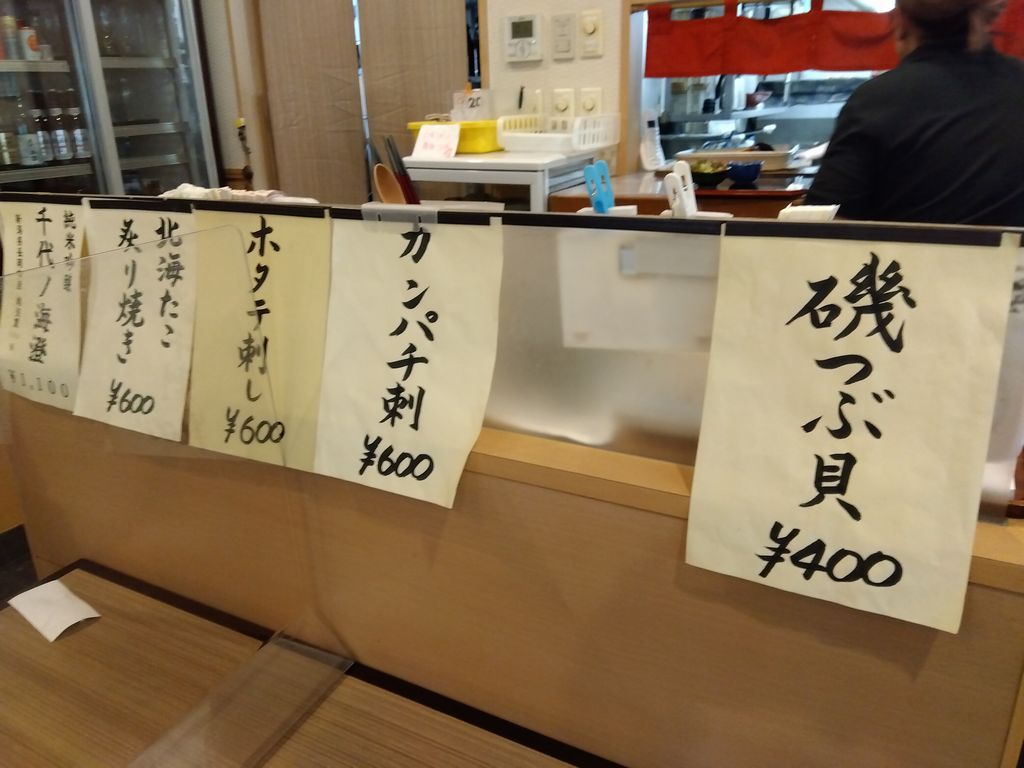 磯つぶ貝
¥400
カンパチ刺
¥600
ホタテ刺し
¥600
北海たこ
炙り焼き
¥600
純米吟醸
千代ノ海澄
¥1,100
20